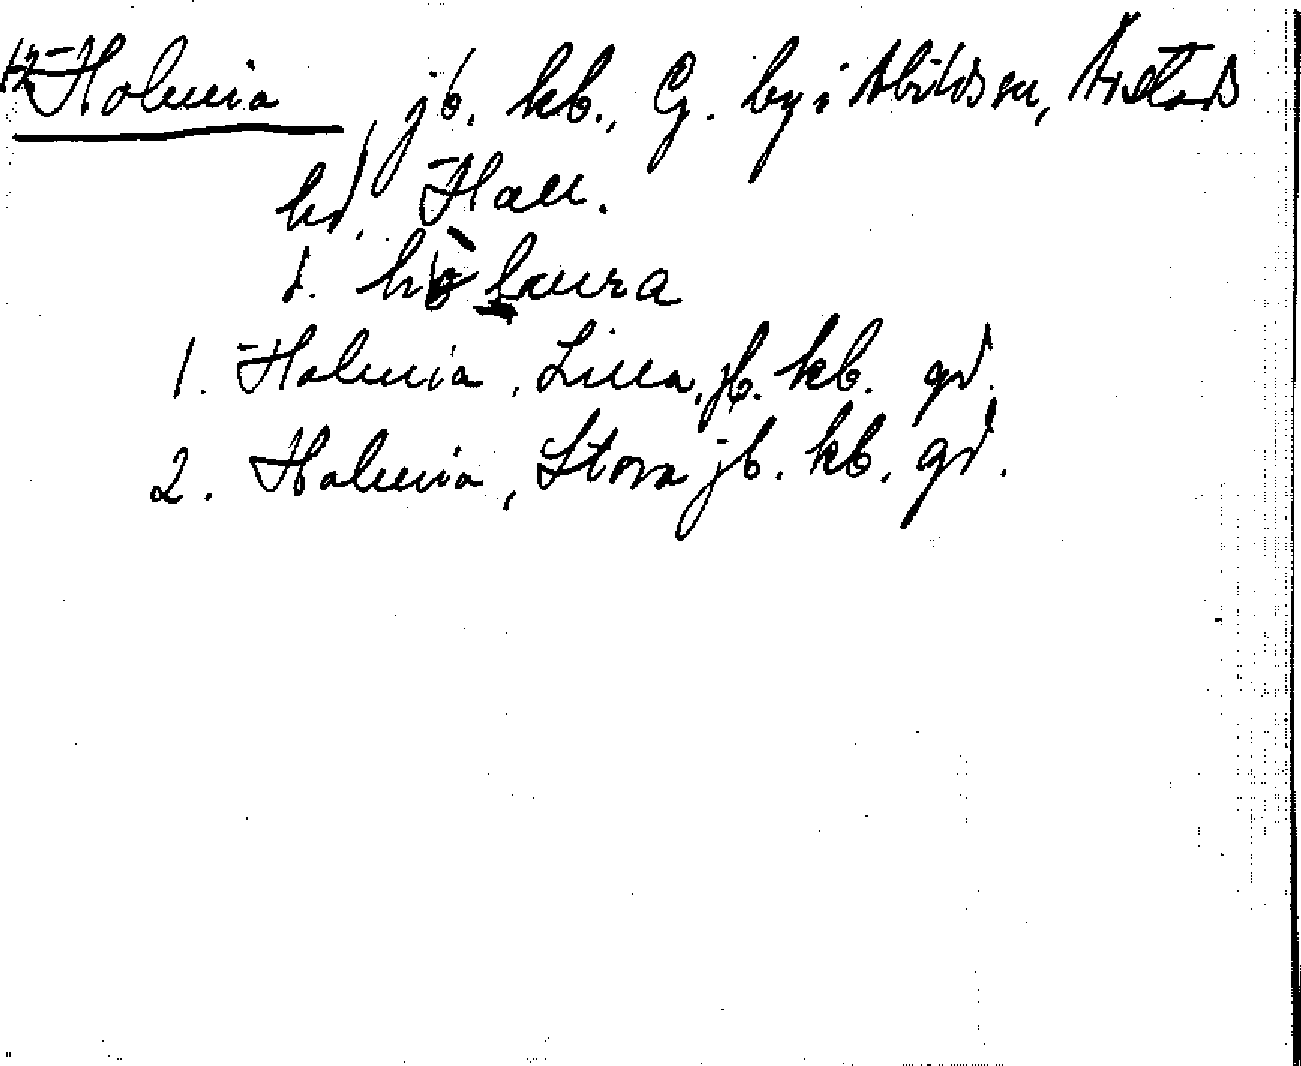 12 Holmia, jb. kb., G. by i Abildsm, Årstads
hd. Hall.
d.
1. Holmia, Lilla, jb. kb. gd.
2. Holmia, Stora jb. kb. gd.